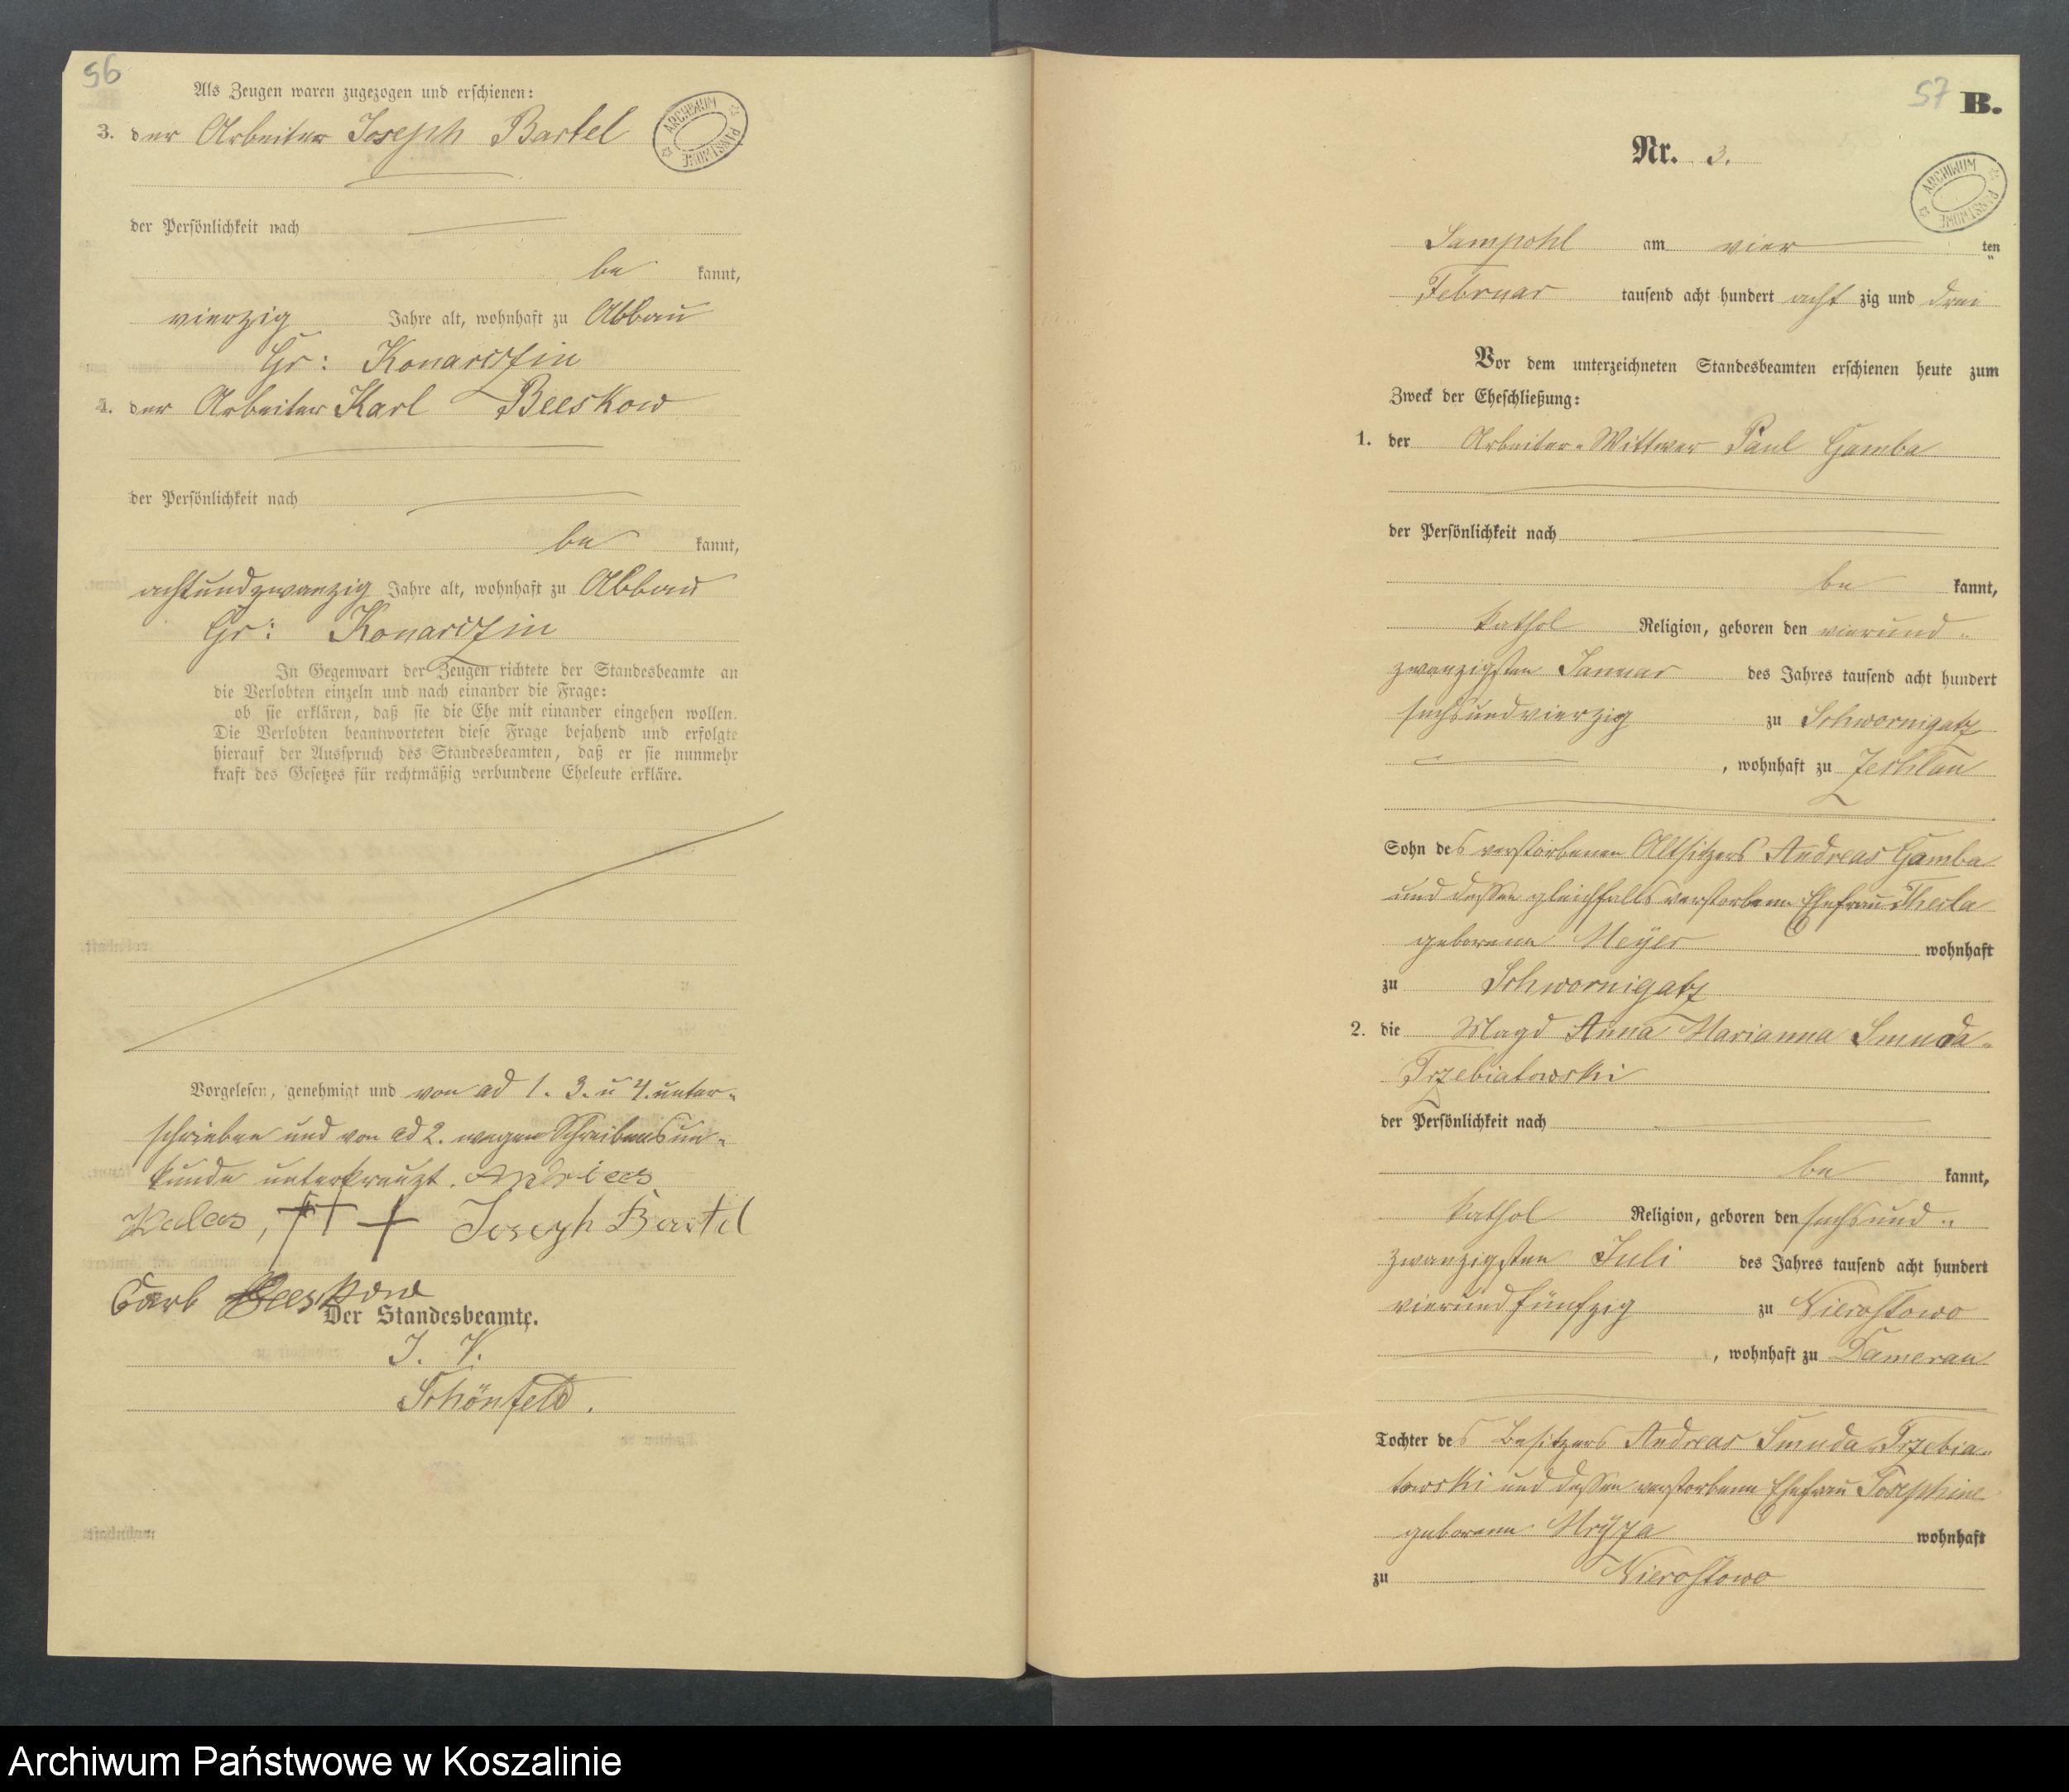 56
Als Zeugen waren zugezogen und erschienen:
3. der Arbeiter Joseph Bartel
ARCHIWUM PAŃSTWOWE
der Persönlichkeit nach
be kannt,
vierzig Jahre alt, wohnhaft zu Abbau
Gr: Konarczin
4. der Arbeiter Karl Beeskow
der Persönlichkeit nach
be kannt,
achtundzwanzig Jahre alt, wohnhaft zu Abbau
Gr: Konarczin
In Gegenwart der Zeugen richtete der Standesbeamte an
die Verlobten einzeln und nach einander die Frage:
ob sie erklären, daß sie die Ehe mit einander eingehen wollen.
Die Verlobten beantworteten diese Frage bejahend und erfolgte
hierauf der Ausspruch des Standesbeamten, daß er sie nunmehr
kraft des Gesetzes für rechtmäßig verbundene Eheleute erkläre.
Vorgelesen, genehmigt und von ad 1. 3. u 4. unter-
schrieben und von ad 2. wegen Schreibensun-
kunde unterkreuzt.
+++ Joseph Bartel
Carl Beeskow
Der Standesbeamte.
I. V.
Schönfeld.
57 B.
Nr. 3.
ARCHIWUM PAŃSTWOWE
Sampohl am vier ten
Februar tausend acht hundert acht zig und drei
Vor dem unterzeichneten Standesbeamten erschienen heute zum
Zweck der Eheschließung:
1. der Arbeiter-Wittwer Paul Gamba
der Persönlichkeit nach
be kannt,
kathol Religion, geboren den vierund-
zwanzigsten Januar des Jahres tausend acht hundert
sechsundvierzig zu Schwornigatz
, wohnhaft zu Zechlau
Sohn des verstorbenen Altsitzers Andreas Gamba
und dessen gleichfalls verstorbene Ehefrau Thecla
geborene Meyer wohnhaft
zu Schwornigatz
2. die Magd Anna Marianna Smuda-
Trzebiatowski
der Persönlichkeit nach
be kannt,
kathol Religion, geboren den sechsund-
zwanzigsten Juli des Jahres tausend acht hundert
vierundfünfzig zu Nierostowo
, wohnhaft zu Damerau
Tochter des Besitzers Andreas Smuda-Trzebia-
towski und dessen verstorbene Ehefrau Josephine
geborene wohnhaft
zu Nierostowo
Archiwum Państwowe w Koszalinie